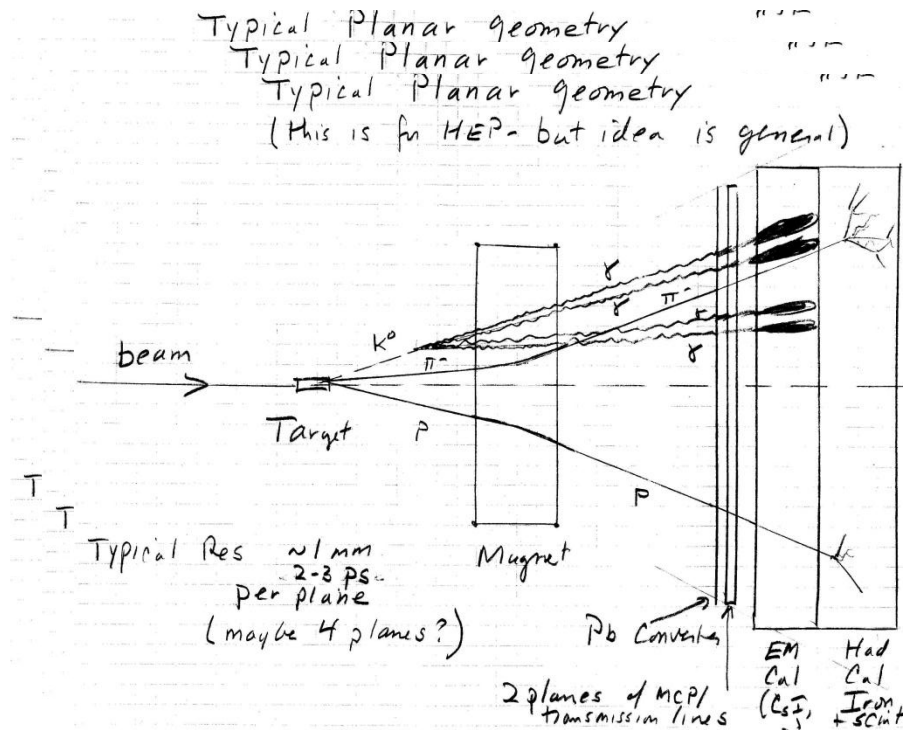 Typical Planar geometry
Typical Planar geometry
Typical Planar geometry
(this is for HEP- but idea is general)
γ
γ
π-
K°
π-
γ
γ
beam
Target
P
P
T
T
Typical Res ~1 mm
2-3 ps
per plane
(maybe 4 planes?)
Magnet
Pb Converter
2 planes of MCP/
transmission lines
EM
Cal
(CsI,
Had
Cal
Iron
+ scint